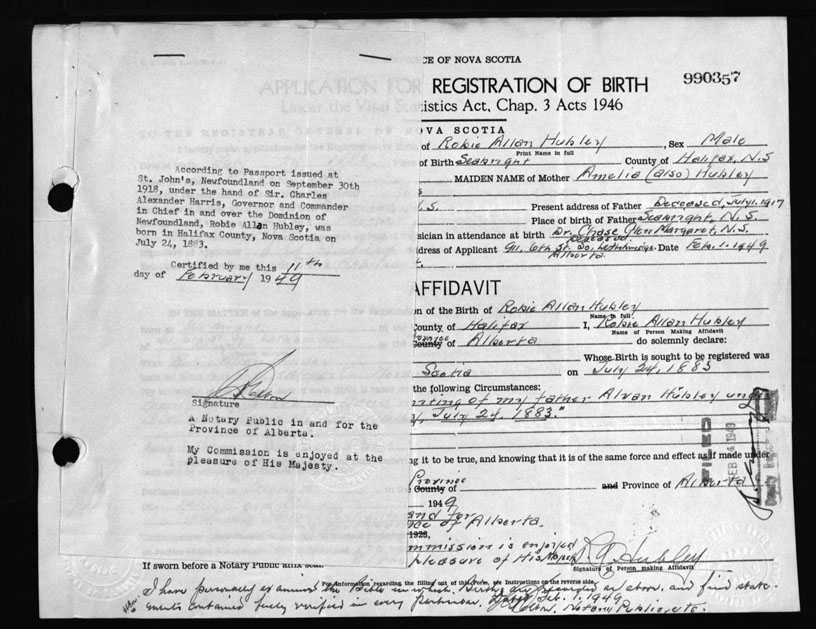 CE OF NOVA SCOTIA
APPLICATION FOR REGISTRATION OF BIRTH
990357
Under the Vital Statistics Act, Chap. 3 Acts 1946
TO THE REGISTRAR GENERAL OF NOVA SCOTIA
of Robie Allan Hubley , Sex Male
Print Name in full
of Birth Seabright County of Halifax, N.S
MAIDEN NAME of Mother Amelia (also) Hubley
.S. Present address of Father Deceased, July 1, 1917
Place of birth of Father Seabright, N.S.
sician in attendance at birth Dr. Chase Glen Margaret, N.S.
Deceased.
dress of Applicant 911. 6th St. So. Lethbridge. Date Feb. 1. 1949
Alberta
According to Passport issued at
St. John's, Newfoundland on September 30th
1918, under the hand of Sir. Charles
Alexander Harris, Governor and Commander
in Chief in and over the Dominion of
Newfoundland, Robie Allan Hubley, was
born in Halifax County, Nova Scotia on
July 24, 1883.
Certified by me this 11th
day of February 1949
Signature
A Notary Public in and for the
Province of Alberta.
My Commission is enjoyed at the
pleasure of His Majesty.
AFFIDAVIT
on of the Birth of Robie Allan Hubley
Name in full
County of Halifax I, Robie Allan Hubley
Name of Person Making Affidavit
Province
County of Alberta do solemnly declare:
Whose Birth is sought to be registered was
Scotia on July 24, 1883
the following Circumstances:
writing of my father Alvan Hubley und
July 24, 1883."
FILED
FEB 1949
ng it to be true, and knowing that it is of the same force and effect as if made under
Province
County of and Province of Alberta
1949
and for
nce of Alberta.
1923,
mmission is enjoyed
pleasure of His Majesty
R A Hubley
Signature of Person making Affidavit
If sworn before a Notary Public affix seal.
For information regarding the filling out of this form, see Instructions on the reverse side.
I have personally examined the Bible in which Births are recorded as above, and find state-
ments contained fully verified in every Particular. Feb. 1. 1949
Notary Public, etc.